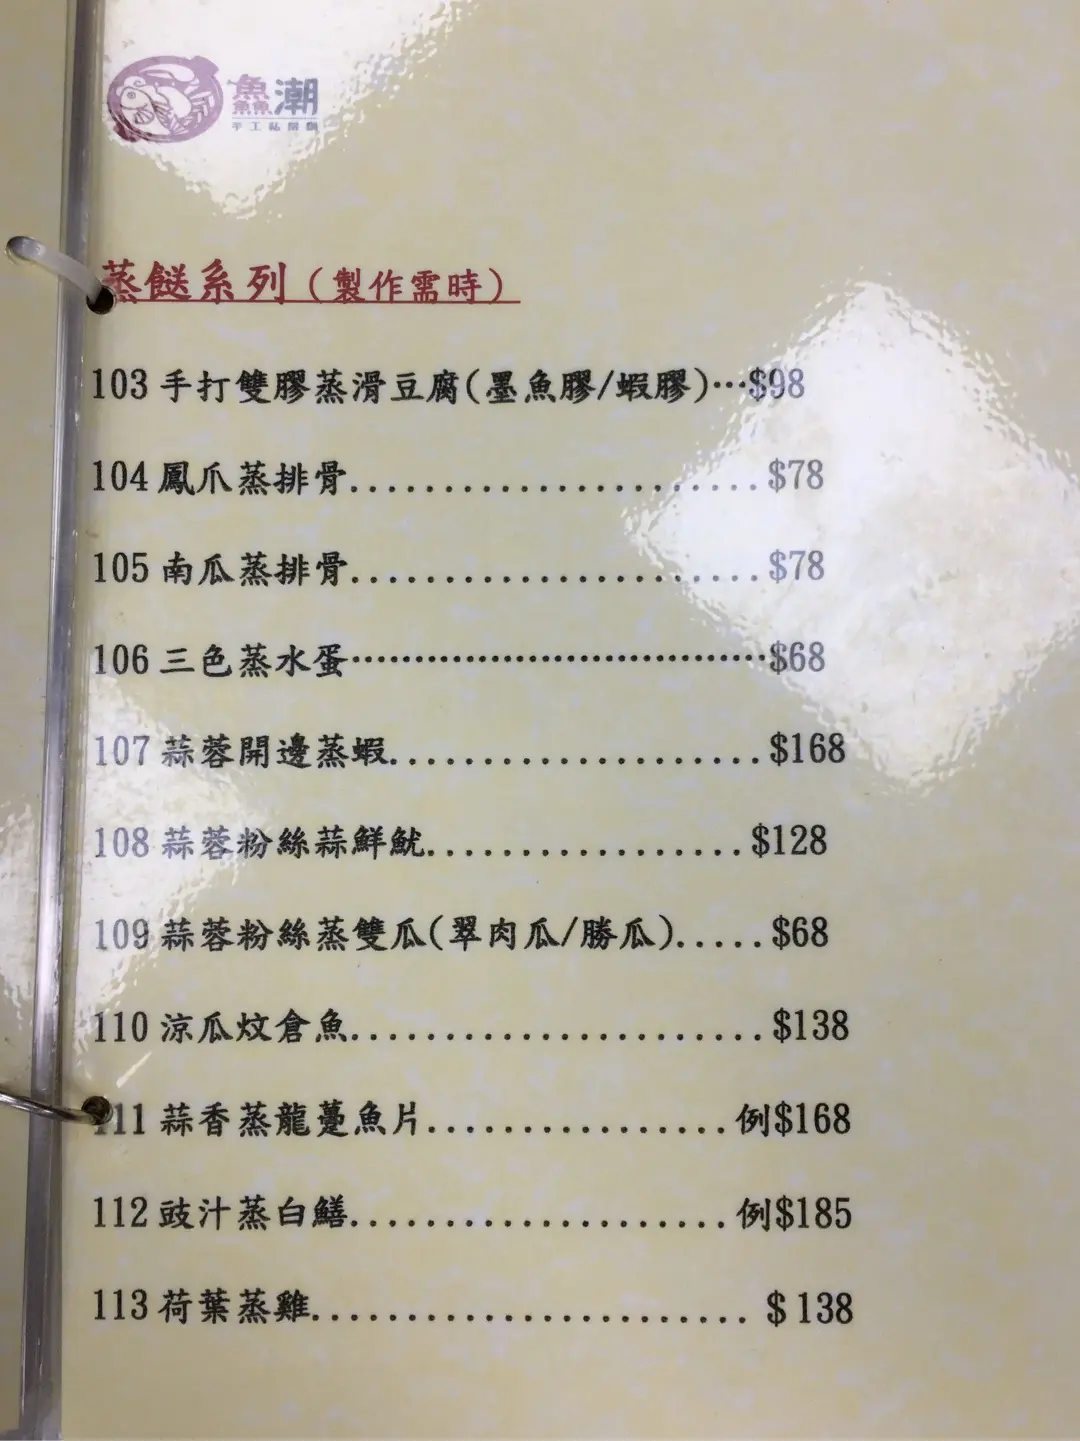 鱻潮
手工私房麵
蒸餸系列（製作需時）
103 手打雙膠蒸滑豆腐(墨魚膠/蝦膠)…$98
104 鳳爪蒸排骨......................$78
105 南瓜蒸排骨......................$78
106 三色蒸水蛋……………………………$68
107 蒜蓉開邊蒸蝦....................$168
108 蒜蓉粉絲蒜鮮魷.................$128
109 蒜蓉粉絲蒸雙瓜(翠肉瓜/勝瓜).....$68
110 涼瓜炆倉魚......................$138
111 蒜香蒸龍躉魚片................例$168
112 豉汁蒸白鱔....................例$185
113 荷葉蒸雞....................... $138